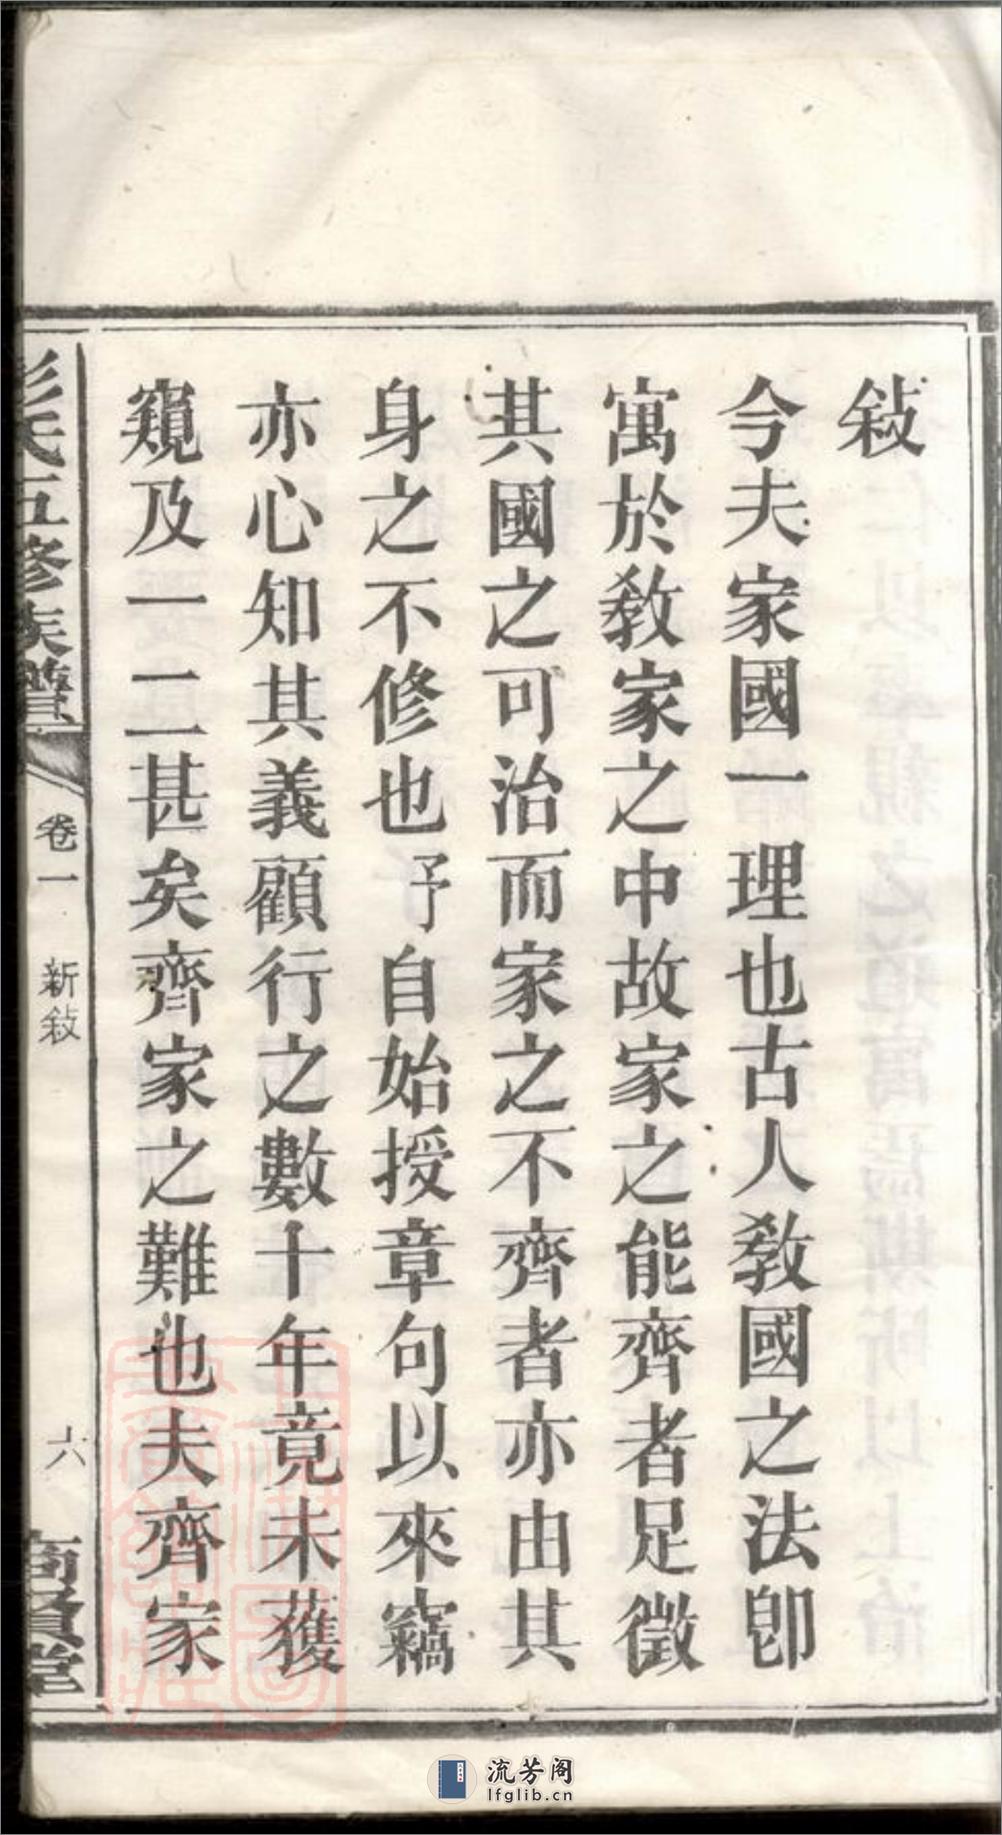 敍
今夫家國一理也古人敎國之法卽
寓於敎家之中故家之能齊者足徵
其國之可治而家之不齊者亦由其
身之不修也予自始授章句以來竊
亦心知其義顧行之數十年竟未獲
窺及一二甚矣齊家之難也夫齊家
彭氏五修族譜
卷一
新敍
六
商賢堂
流芳阁
lfglib.cn